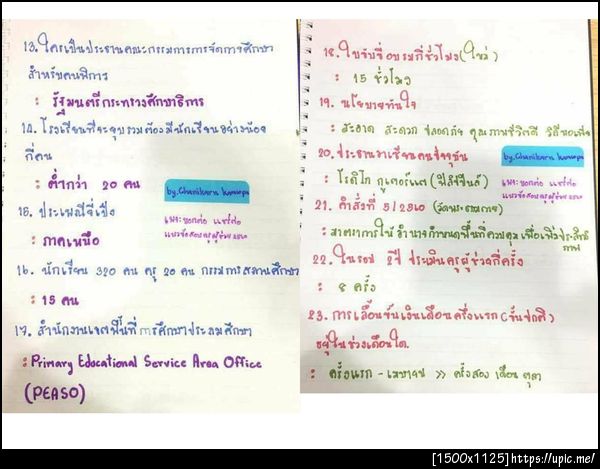 13. ใครเป็นประธานคณะกรรมการการจัดการศึกษา
สำหรับคนพิการ
: รัฐมนตรีกระทรวงศึกษาธิการ
14. โรงเรียนที่จะยุบรวมต้องมีนักเรียนอย่างน้อย
กี่คน
: ต่ำกว่า 20 คน
by.Chanikarn
เพจ: บอกต่อ แชร์ต่อ
แนวข้อสอบครูผู้ช่วย
15. ประเพณีจี่เป็ง
: ภาคเหนือ
16. นักเรียน 320 คน ครู 20 คน กรรมการสถานศึกษา
: 15 คน
17. สำนักงานเขตพื้นที่การศึกษาประถมศึกษา
: Primary Educational Service Area Office
(PEASO)
18. ใบขับขี่อบรมกี่ชั่วโมง (ใหม่)
: 15 ชั่วโมง
19. นโยบายทันใจ
: สะอาด สะดวก ปลอดภัย คุณภาพชีวิตดี วิถีพอเพียง
20. ประธานอาเซียนคนปัจจุบัน
: โรดิโก ดูเตอร์เต (ฟิลิปปินส์)
by.Chanikarn
เพจ: บอกต่อ แชร์ต่อ
แนวข้อสอบครูผู้ช่วย
21. คำสั่งที่ 5/2560 (วัดพระธรรมกาย)
: มาตราการใช้ อำนาจกำหนดพื้นที่ควบคุม เพื่อเพิ่มประสิทธิ
ภาพ
22. ในรอบ 2ปี ประเมินครูผู้ช่วยกี่ครั้ง
: 8 ครั้ง
23. การเลื่อนขั้นเงินเดือนครั้งแรก (ขั้นปกติ)
อยู่ในช่วงเดือนใด.
: ครั้งแรก - เมษายน >> ครั้งสอง เดือน ตุลา
[1500x1125]https://upic.me/